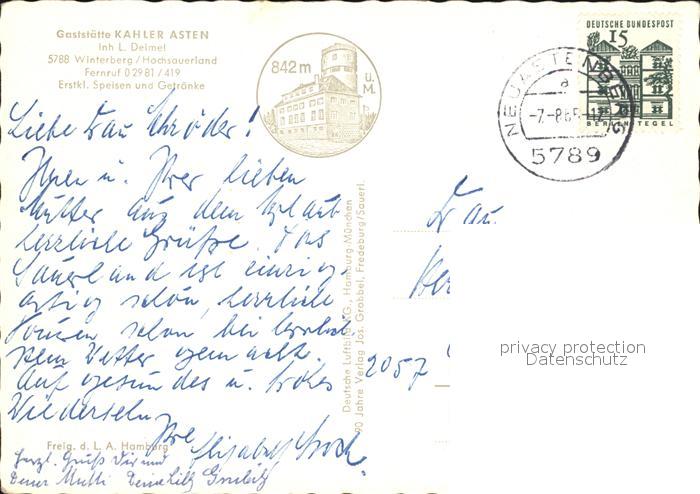 Gaststätte KAHLER ASTEN
Inh L. Deimel
5788 Winterberg / Hochsauerland
Fernruf 02981 / 419
Erstkl. Speisen und Getränke
842 m
ü.
M.
DEUTSCHE BUNDESPOST
15
BERLIN-TEGEL
NEUASTENBERG
a
5789
Liebe Frau Schröder!
Ihnen u. Ihrer lieben
Mutter aus dem Urlaub
herzliche Grüße. Das
Sauerland ist einzig-
artig schön, herrliche
Touren schon bei
Wetter gemacht.
Auf gesundes u. frohes
Wiedersehn
Ihre Elisabeth
Herzl. Gruß Dir und
Deiner Mutti Deine
Frau
2057
Deutsche Luftbild KG., Hamburg-München
90 Jahre Verlag Jos. Grobbel, Fredeburg/Sauerl.
Freig. d. L. A. Hamburg
privacy protection
Datenschutz